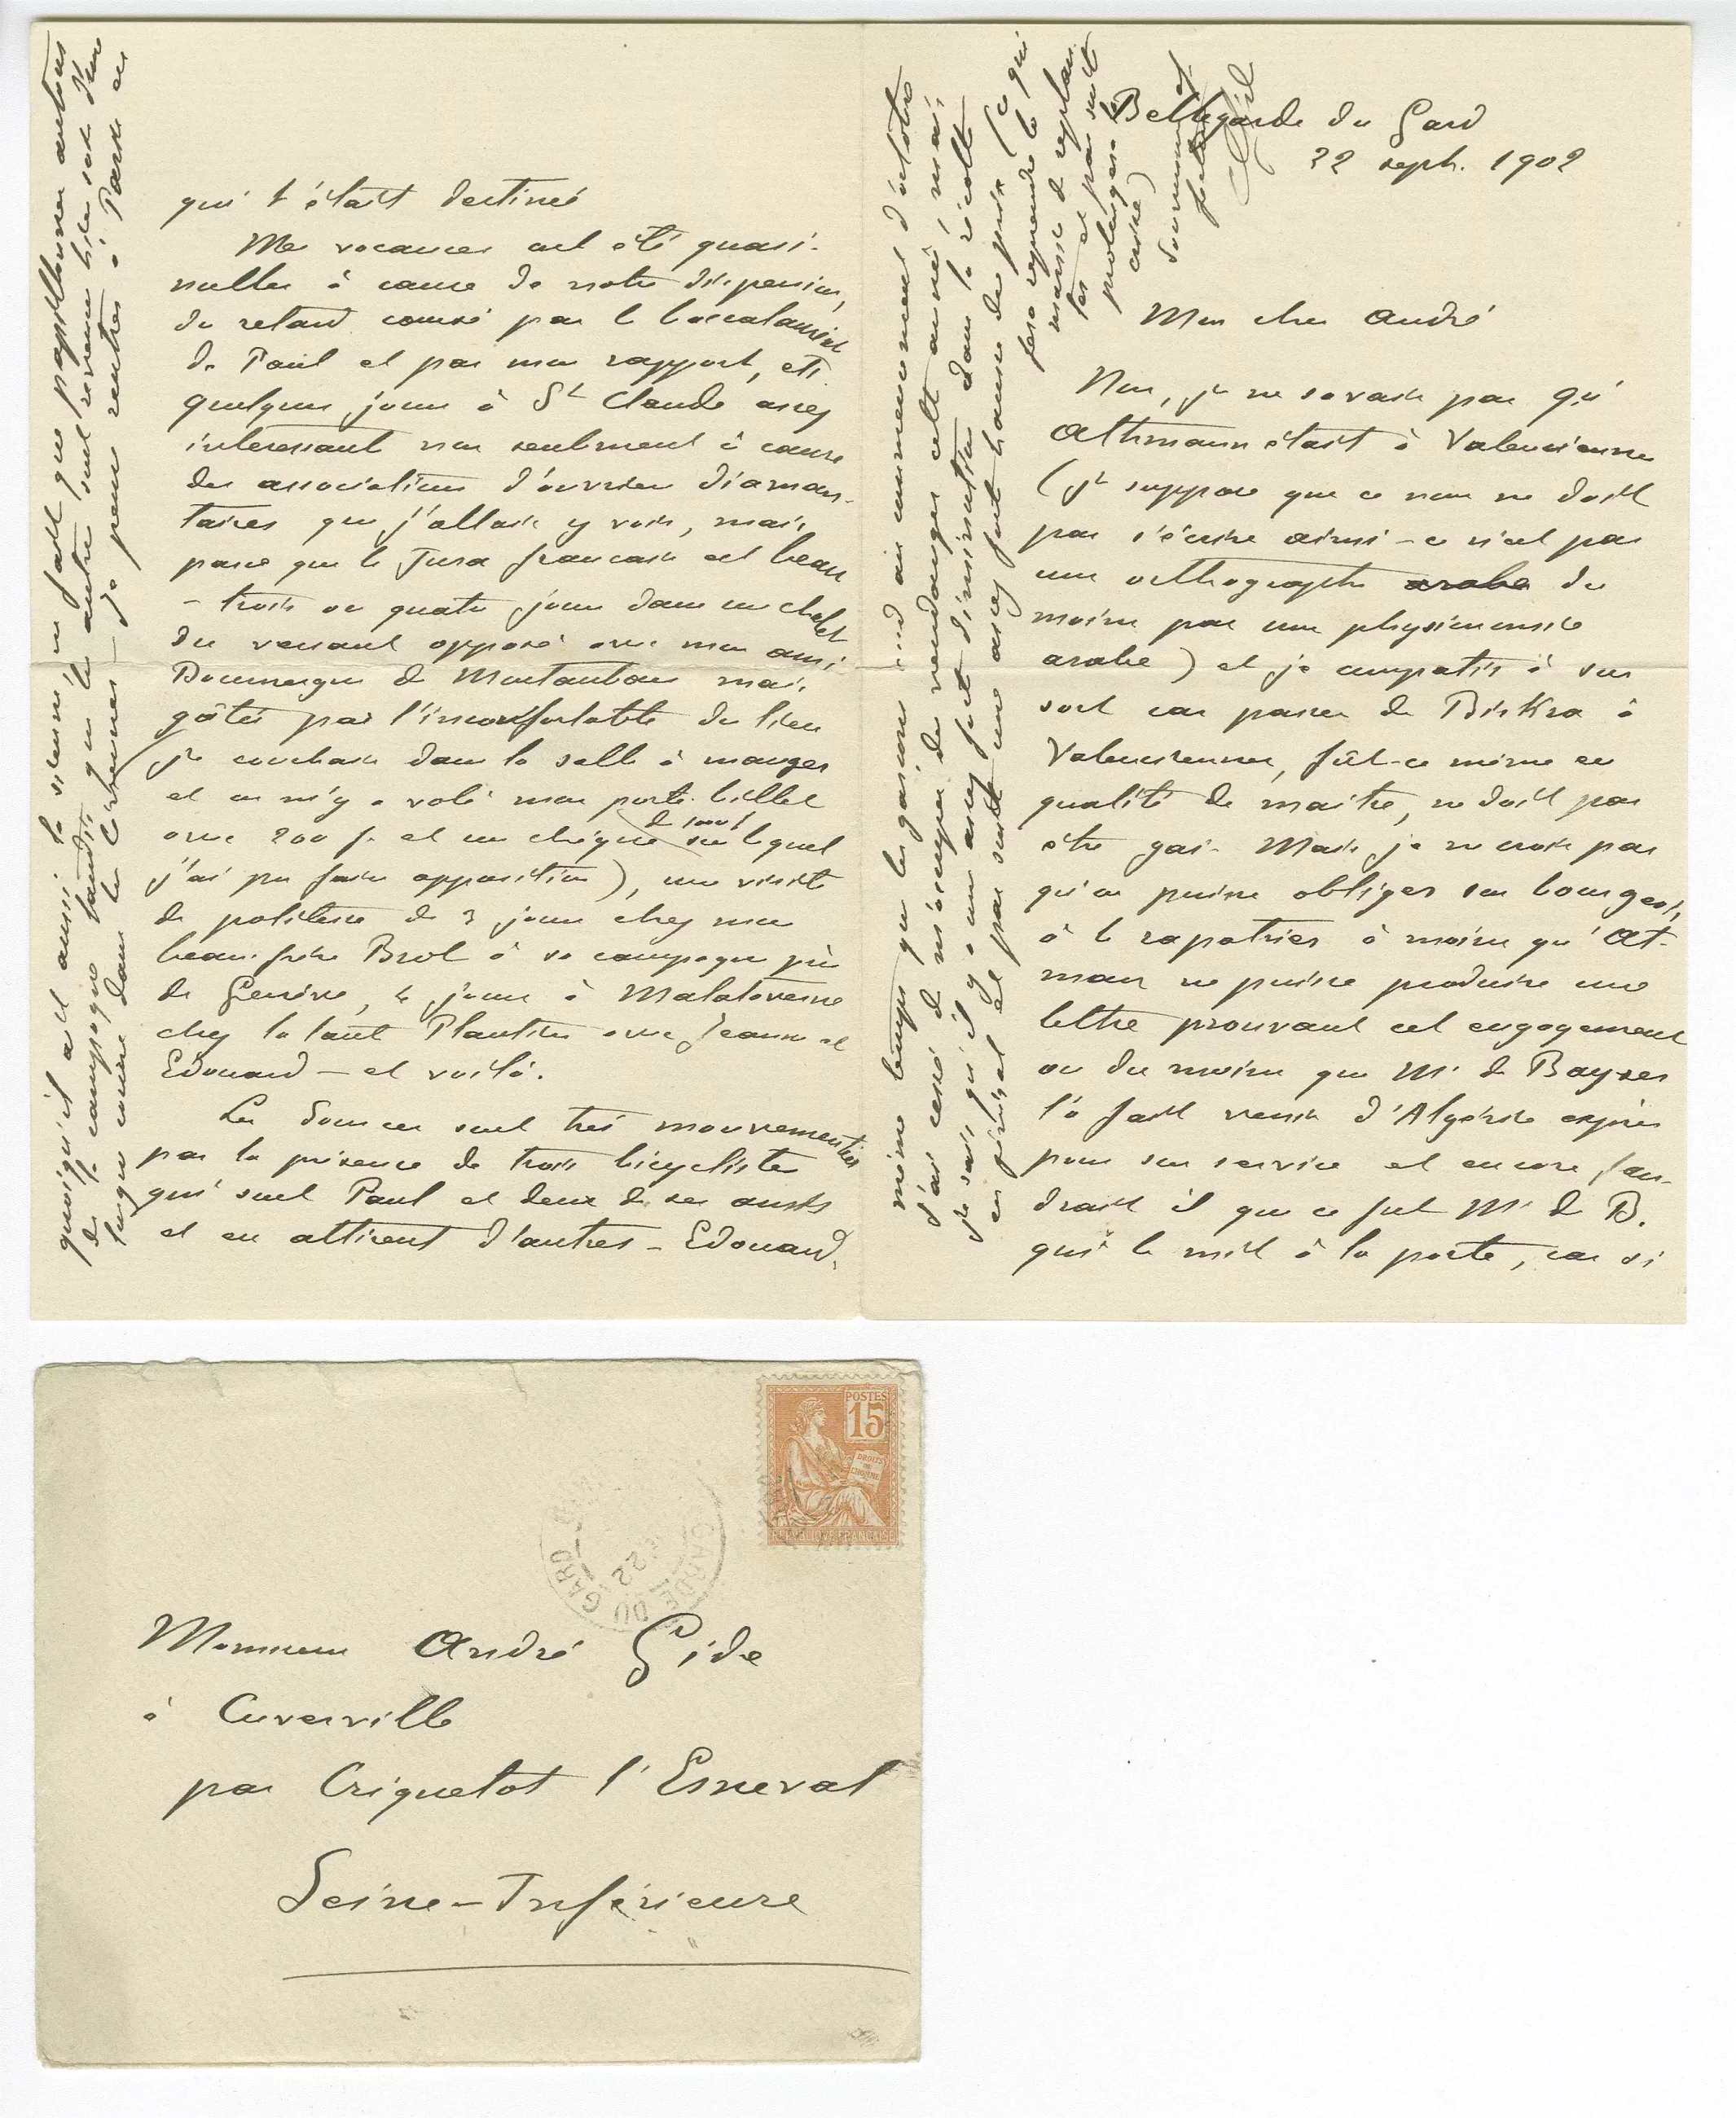 Bellegarde du Gard
22 sept. 1902
Mon cher André
Non, je ne savais pas qu'
Athmann était à Valenciennes
(je suppose que ce nom ne doit
pas s'écrire ainsi – ce n'est pas
une orthographe arabe du
moins pas une physionomie
arabe) et je compatis à son
sort car passer de Biskra à
Valenciennes, fût-ce même en
qualité de maître, ne doit pas
être gai. Mais je ne crois pas
qu'on puisse obliger son bourgeois
à le rapatrier à moins qu'At-
man ne puisse produire une
lettre prouvant cet engagement
ou du moins que Mr de Bayser
l'a fait venir d'Algérie exprès
pour son service et encore fau-
drait il que ce fut Mr de B.
qui le mit à la porte, car si
qui t'était destiné
Mes vacances ont été quasi-
nulles à cause de notre dispersion,
du retard causé par le baccalauréat
de Paul et par mon rapport, etc.
quelques jours à St Claude assez
interessant non seulement à cause
des associations d'ouvriers diaman-
taires que j'allais y voir, mais
parce que le Jura francais est beau
– trois ou quatre jours dans un chalet
du versant opposé avec mon ami
Doumergue de Montauban mais
gâtés par l'inconfortable du lieu
(je couchais dans la salle à manger
et on m'y a volé mon porte-billet
avec 200 f. et un chèque sur lequel
j'ai pu faire opposition), une visite
de politesse de 3 jours chez mon
beau-frère Brol à sa campagne près
de Genève, 4 jours à Malataverne
chez la tante Plantier avec Jeanne et
Edouard – et voilà.
Les Sources sont très mouvementées
par la présence de trois bicyclistes
qui sont Paul et deux de ses amis
et en attirent d'autres – Edouard,
quoiqu'il ait aussi la sienne, ne fait que papillonner autour
de la campagne tandis que les autres sont revenus hier soir d'une
longue course dans les Cévennes – je pense rentrer à Paris en
même temps que les garçons soit au commencement d'octobre
J'ai cessé de m'occuper de vendanges cette année, mais
je sais qu'il y a une assez forte diminution dans la récolte
en général et par suite une assez forte hausse des prix (ce qui
fera reprendre la
manie de replan-
ter et par suite
prolongera la
crise)
Monsieur André Gide
à Cuverville
par Criquetot l'Esneval
Seine-Inférieure
POSTES
15
DROITS
DE
L'HOMME
REPUBLIQUE FRANCAISE
GARDE DU GARD
22